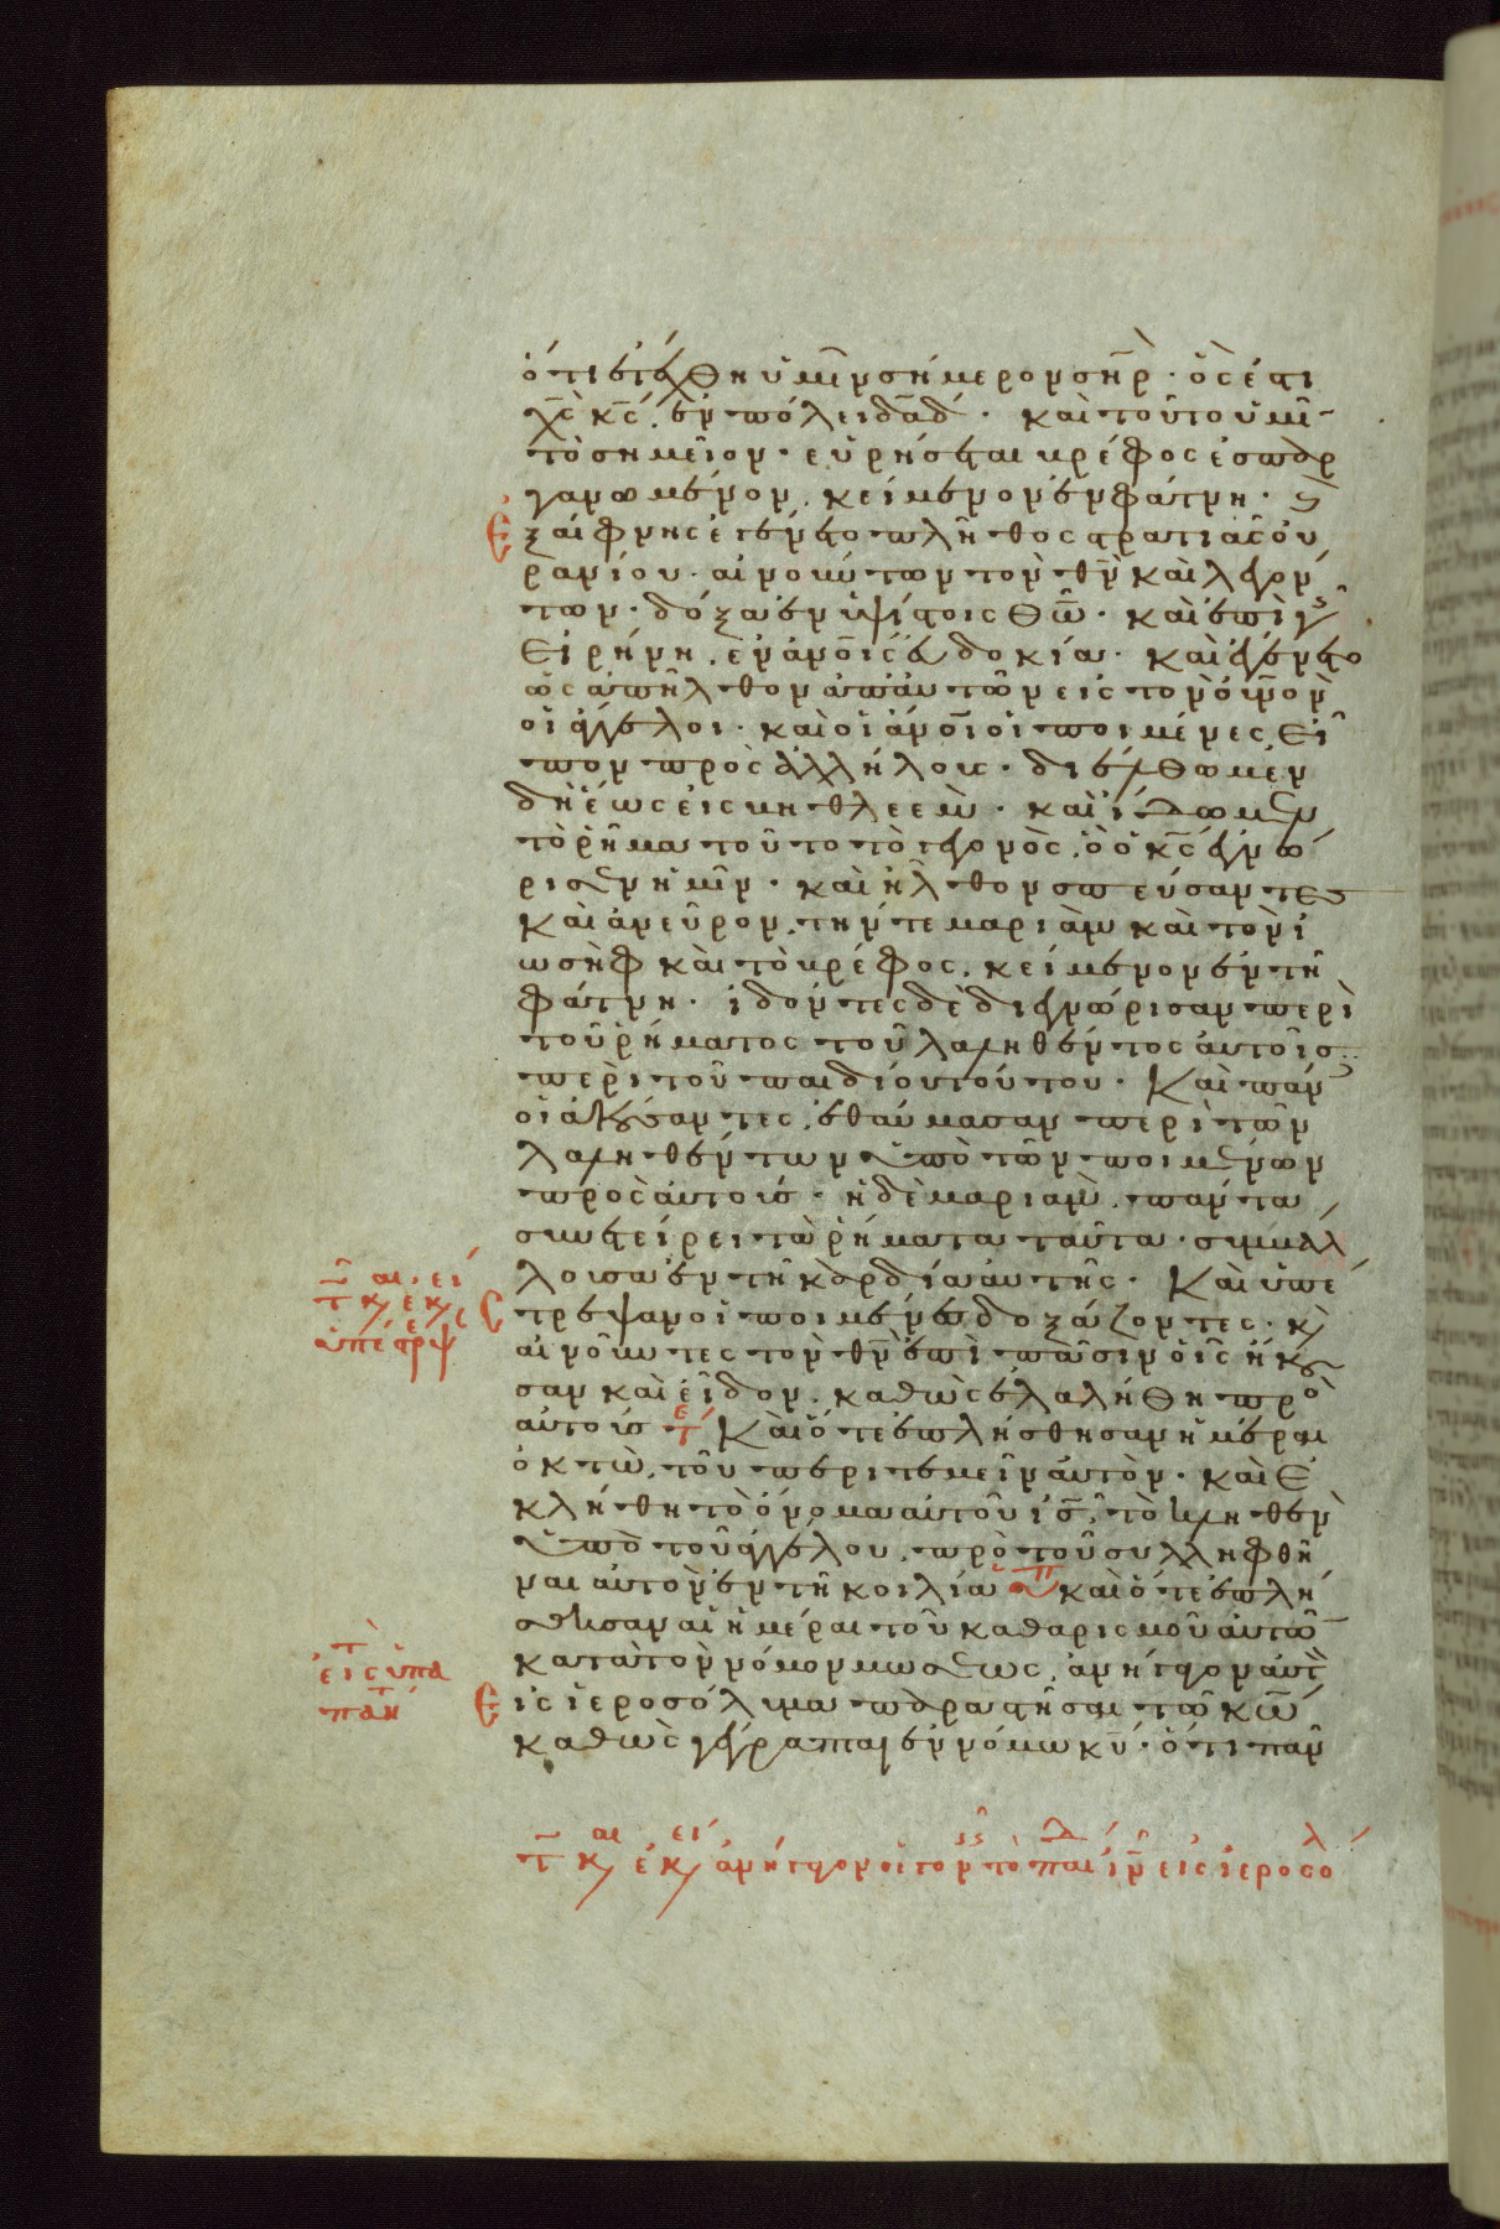 ὅτι ἐτέχθη ὑμῖν σήμερον σηρ̅· ὅς ἐστι
χ̅ς κ̅ς, ἐν πόλει δα̅δ· καὶ τοῦτο ὑμῖ
τὸ σημεῖον· εὑρήσεται βρέφος ἐσπαρ
γανωμένον, κείμενον ἐν φάτνη· ϗ
Ἐξαίφνης ἐγένετο πλῆθος στρατιᾶς οὐ
ρανίου· αἰνούντων τὸν θ̅ν καὶ λεγόν
των· δόξα ἐν ὑψίστοις θ̅ω· καὶ ἐπὶ γῆς
εἰρήνη, ἐν α̅νοις εὐδοκία· καὶ ἐγένετο
ὡς ἀπῆλθον ἀπ' αὐτῶν εἰς τὸν ο̅υνον
οἱ ἄγγελοι· καὶ οἱ α̅νοι οἱ ποιμένες εἶ
πον πρὸς ἀλλήλους· διέλθωμεν
δὴ ἕως εἰς βηθλεέμ· καὶ ἴδωμεν
τὸ ῥῆμα τοῦτο τὸ γεγονὸς, ὃ ὁ κ̅ς ἐγνώ
ρισεν ἡμῖν· καὶ ἦλθον σπεύσαντες
καὶ ἀνεῦρον, τήν τε μαριὰμ καὶ τὸν ἰ
ωσὴφ καὶ τὸ βρέφος, κείμενον ἐν τῆ
φάτνη· ἰδόντες δὲ διεγνώρισαν περὶ
τοῦ ῥήματος τοῦ λαληθέντος αὐτοῖς
περὶ τοῦ παιδίου τούτου· Καὶ πάν
οἱ ἀκούσαντες, ἐθαύμασαν περὶ τῶν
λαληθέντων ὑπὸ τῶν ποιμένων
πρὸς αὐτούς· ἡ δὲ μαριὰμ, πάντα
συνετήρει τὰ ῥήματα ταῦτα· συμβάλ
λουσα ἐν τῆ καρδία αὐτῆς· Καὶ ὑπέ
τ̅ κ̅αι ἐκ̅ει
στρεψαν οἱ ποιμένες δοξάζοντες· ϗ
ὑπέστρεψ
αἰνοῦντες τὸν θ̅ν ἐπὶ πᾶσιν οἷς ἤκου
σαν καὶ εἶδον, καθὼς ἐλαλήθη πρὸ
αὐτούς τέ Καὶ ὅτε ἐπλήσθησαν ἡμέραι
ὀκτὼ, τοῦ περιτεμεῖν αὐτὸν· καὶ ἐ
κλήθη τὸ ὄνομα αὐτοῦ ι̅ς, τὸ κληθὲν
ὑπὸ τοῦ ἀγγέλου, πρὸ τοῦ συλληφθῆ
ναι αὐτὸν ἐν τῆ κοιλία ὑπ καὶ ὅτε ἐπλή
σθησαν αἱ ἡμέραι τοῦ καθαρισμοῦ αὐτῶ
τ
εἰς ὑπα
παντή
κατὰ τὸν νόμον μωσέως, ἀνήγαγον αὐτὸ
Εἰς ἱεροσόλυμα παραστῆσαι τῶ κ̅ω
καθὼς γέγραπται ἐν νόμω κ̅υ· ὅτι πᾶν
τ̅ κ̅αι ἐκ̅ει ἀνήγαγον οἱ γονεῖς τὸ παιδ ι̅ν εἰς ἱεροσολ